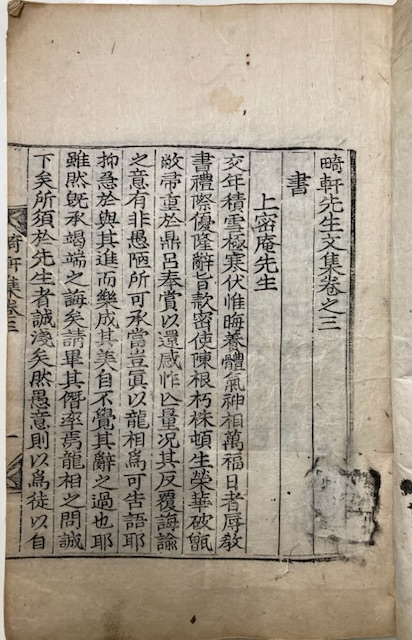 畸軒先生文集卷之三
書
上密庵先生
交年積雪極寒伏惟晦養體氣神相萬福日者辱敎
書禮際優隆辭旨款密使陳根朽株頓生榮華破甑
敝帚重於鼎呂奉賞以還感怍亡量况其反覆誨諭
之意有非愚陋所可承當豈眞以龍相爲可告語耶
抑急於與其進而樂成其美自不覺其辭之過也耶
雖然旣承竭端之誨矣請畢其僭率焉龍相之問誠
下矣所須於先生者誠淺矣然愚意則以爲徒以自
畸軒集卷三